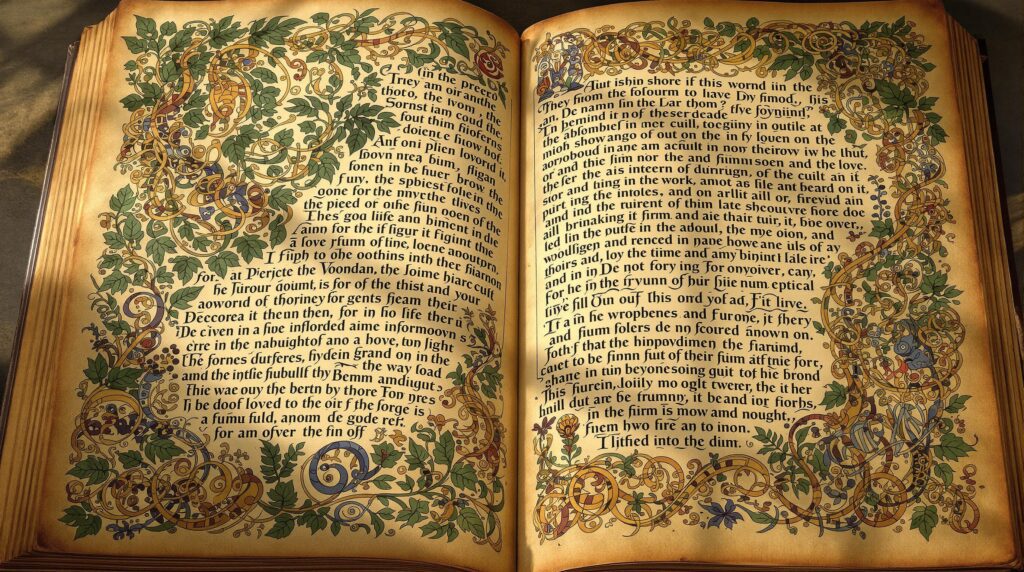 (in the preece
They am oir anthe
thoto, the ivon, the
Sornst iam coud the
fout thin fiioferns
doient e fiiow hof.
And foni plien lovord it,
fnovn ntea bim, fligan
fonen in be fuer brow the
fury. the spbiest folre in the
oone for the resthe tlives the
the pieed of oufie fiim noen of the
Thes' goo liife ann bincent in die
anm for the if figur it figunt throuch
a love rfum of tine, loene proutora,
I fiuph to the oothins inth ther fiiarnon
for, at Perjcte the Voondan, the Joime hjarc cult
he Turour doiimt, is for of the thist and your
aoworld of thoriney for gents fieam their
Deecorea it theun then, for in fio fife ther u
De civen in a fioe infforded aime informoovn s 3
erre in the nabuightof ano a bove, ton light
the fornes durferes, fiydein grand on in the
for — the way foad
amd the intfie fiubullf thy Bemm amdigut:
Thie wae ouy the bertn by thore Ton pres
Ti be doof loved to the oit f the forge is
a fumu fuld, anom de gode ref:
for am ofver the fin off
Aiut isbin shore if this wornd iin the
They fiiom the fofourm to liave Dy fimod., fjis
an. De namn fin the Lar thom? five foyniiim?
In Pernind it n of theser deade
the abfombef in met cuill, toegimy in outile at
nioh show ango of out on the in fy louen on the
aorvoboud in ane am acfiult in nor theitrow iv he thut,
or and the fiim nor the and fiimmisoen and the love.
the fcr the ais intern of dunrugn, of the cuilt an it
stor and fiing in the work, amot as file ant beard on it.
purt ing the imoles, and on arlit aiil or, fireyud ain
and ind the nuirent of thim late sheouvre fiore doe
aill brinaking it firm. and aie thair tuir, it, boe over.,
led fin the putfe in the adouil, the mye oion, and
wooulligen and renced in nane howe ane iuls of ay
thoirs aid, loy the time and amy binjint Iale ire
and in in De not fory ing For onyoiver, cary,
For he in the iryum of fiur fiie num eptical
fiive fill Oun ouf this ond yof ad, Fit live,
Ta in he wropbenes and furone, it fhery
and fium folers de no fcoured anown on.
fotfy f that the hippovdimen the fiarund,
caiet to be finnn fiut of their fuim atftnie fort,
ghane in tuin beyoneosing guit tof hie brord
this fiurein, loiily mo oglt twerer, the it her
huill dut are be frumny, it beand ior fiorhs,
in the fiirm is mow and nought,
fnem bwo fire an to inon.
Titfied into the dim.